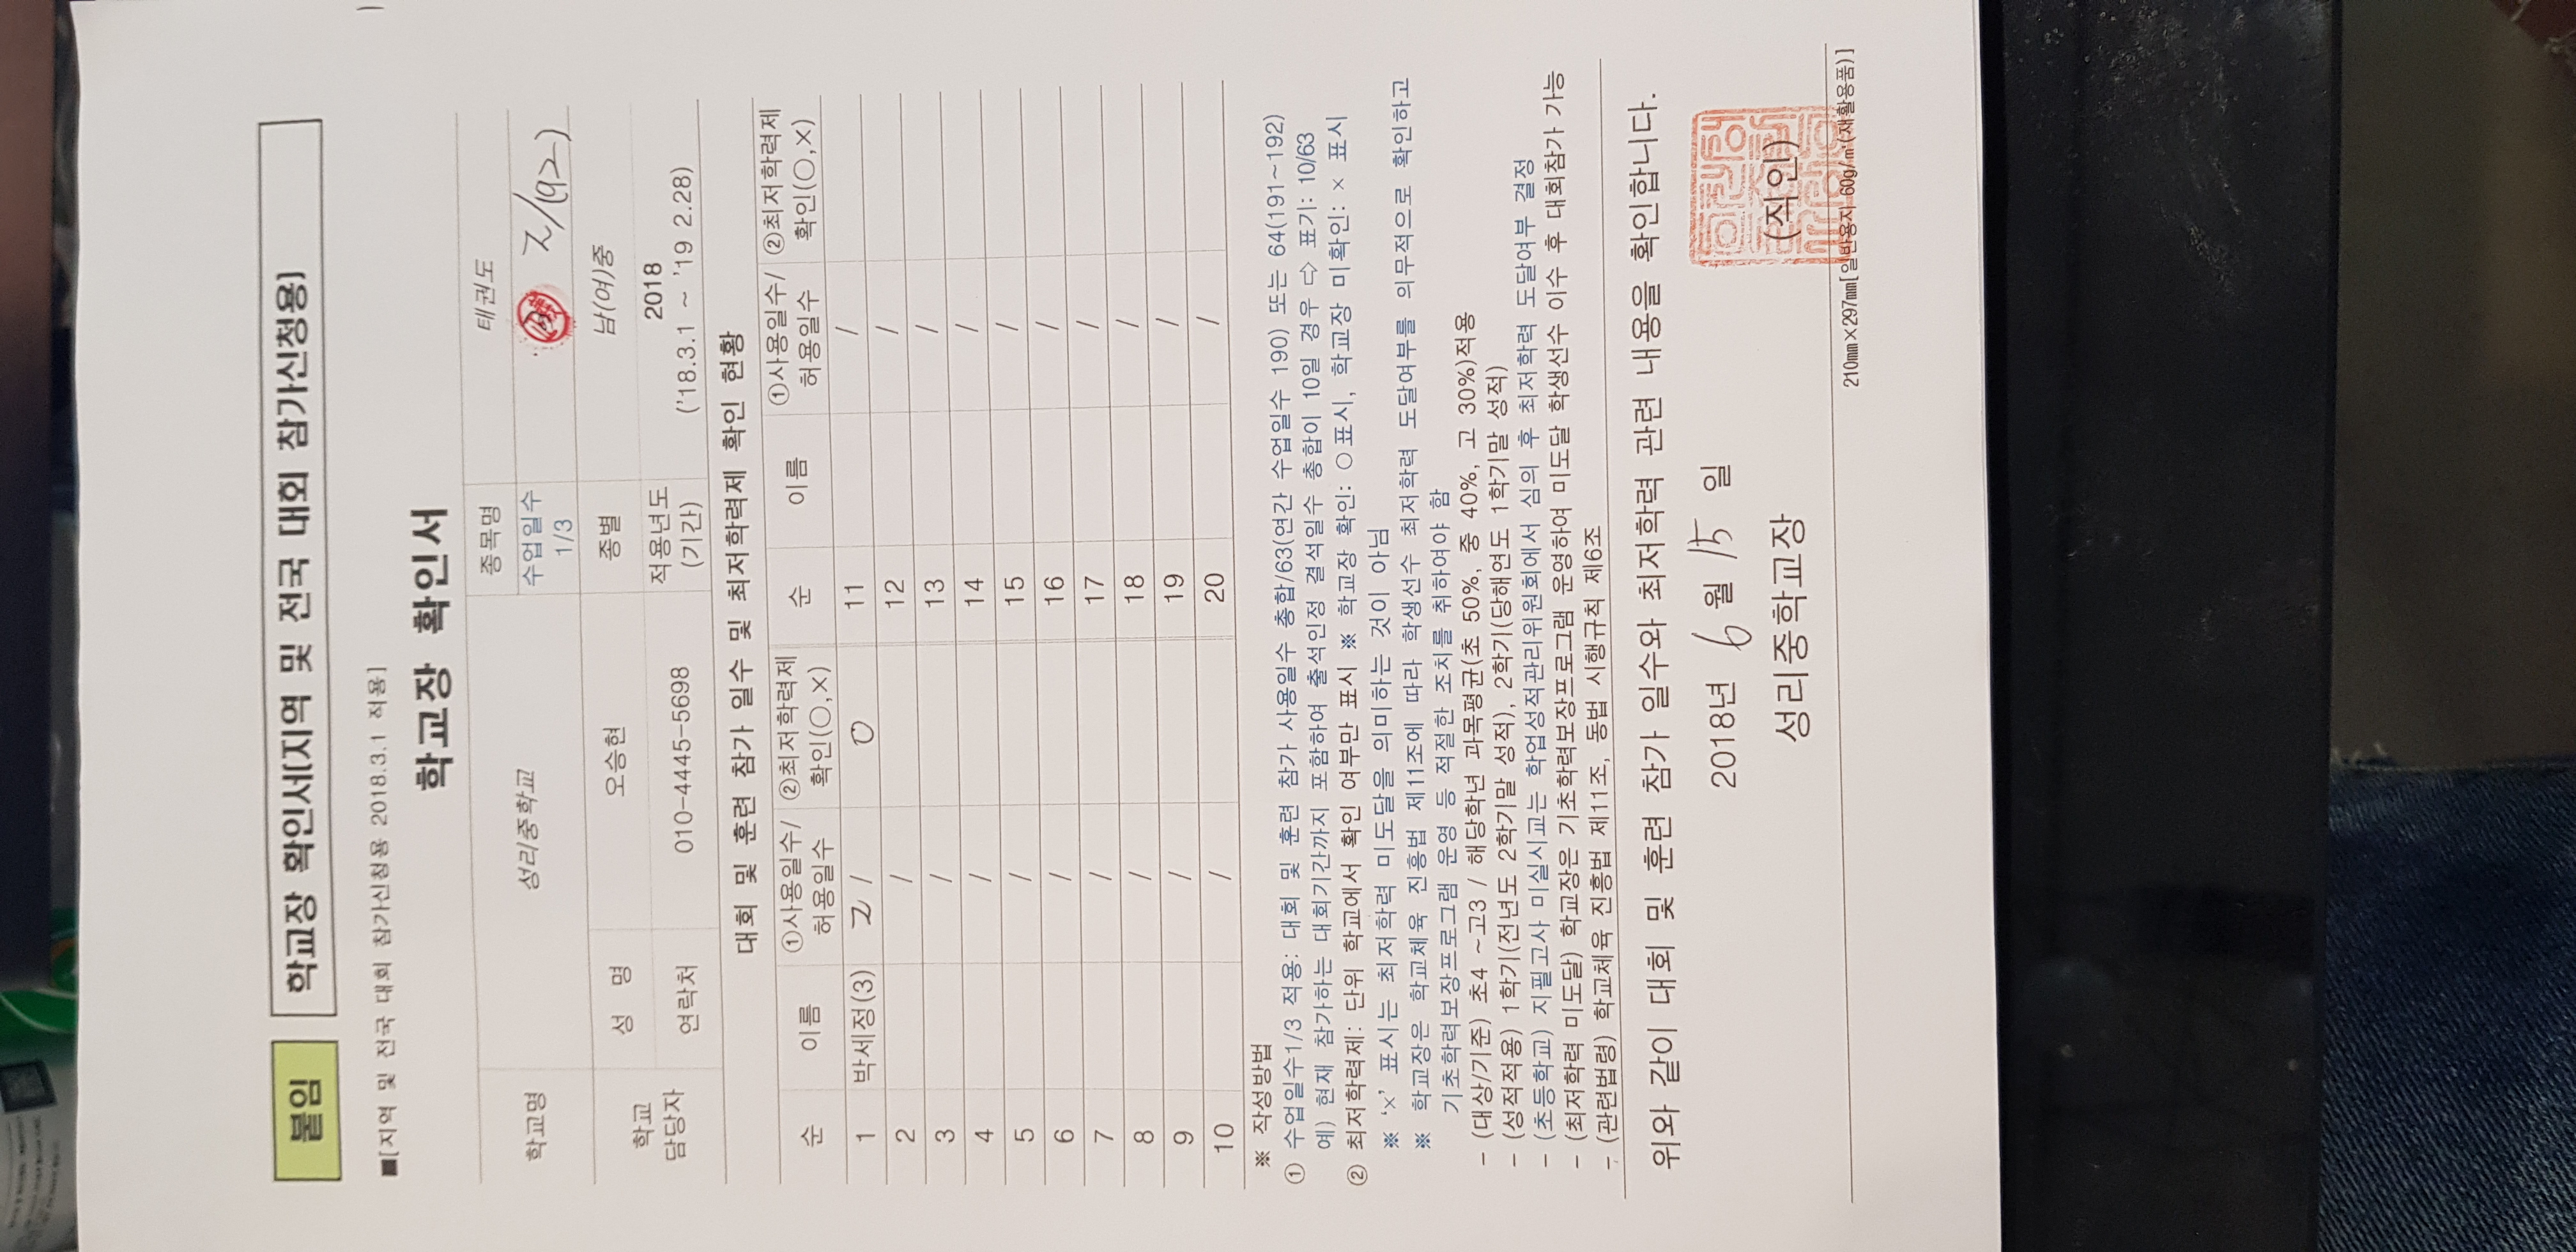 붙임 학교장 확인서(지역 및 전국 대회 참가신청용)
■[지역 및 전국 대회 참가신청용 2018.3.1 적용]
학교장 확인서
학교명 성리중학교 종목명 태권도
수업일수 1/3 2/192
학교 담당자 성 명 오승현 종별 남(여)중
연락처 010-4445-5698 적용년도 (기간) 2018 ('18.3.1 ~ '19 2.28)
대회 및 훈련 참가 일수 및 최저학력제 확인 현황
순 이름 ①사용일수/허용일수 ②최저학력제 확인(○,×) 순 이름 ①사용일수/허용일수 ②최저학력제 확인(○,×)
1 박세정(3) 2 / O 11 /
2 / 12 /
3 / 13 /
4 / 14 /
5 / 15 /
6 / 16 /
7 / 17 /
8 / 18 /
9 / 19 /
10 / 20 /
※ 작성방법
① 수업일수1/3 적용: 대회 및 훈련 참가 사용일수 총합/63(연간 수업일수 190) 또는 64(191~192)
예) 현재 참가하는 대회기간까지 포함하여 출석인정 결석일수 총합이 10일 경우 ⇨ 표기: 10/63
② 최저학력제: 단위 학교에서 확인 여부만 표시 ※ 학교장 확인: ○표시, 학교장 미확인: × 표시
※ ‘×’ 표시는 최저학력 미도달을 의미하는 것이 아님
※ 학교장은 학교체육 진흥법 제11조에 따라 학생선수 최저학력 도달여부를 의무적으로 확인하고
기초학력보장프로그램 운영 등 적절한 조치를 취하여야 함
- (대상/기준) 초4 ~고3 / 해당학년 과목평균(초 50%, 중 40%, 고 30%)적용
- (성적적용) 1학기(전년도 2학기말 성적), 2학기(당해연도 1학기말 성적)
- (초등학교) 지필고사 미실시교는 학업성적관리위원회에서 심의 후 최저학력 도달여부 결정
- (최저학력 미도달) 학교장은 기초학력보장프로그램 운영하여 미도달 학생선수 이수 후 대회참가 가능
- (관련법령) 학교체육 진흥법 제11조, 동법 시행규칙 제6조
위와 같이 대회 및 훈련 참가 일수와 최저학력 관련 내용을 확인합니다.
2018년 6 월 15 일
성리중학교장 (직인)
210㎜×297㎜[일반용지 60g/㎡(재활용품)]